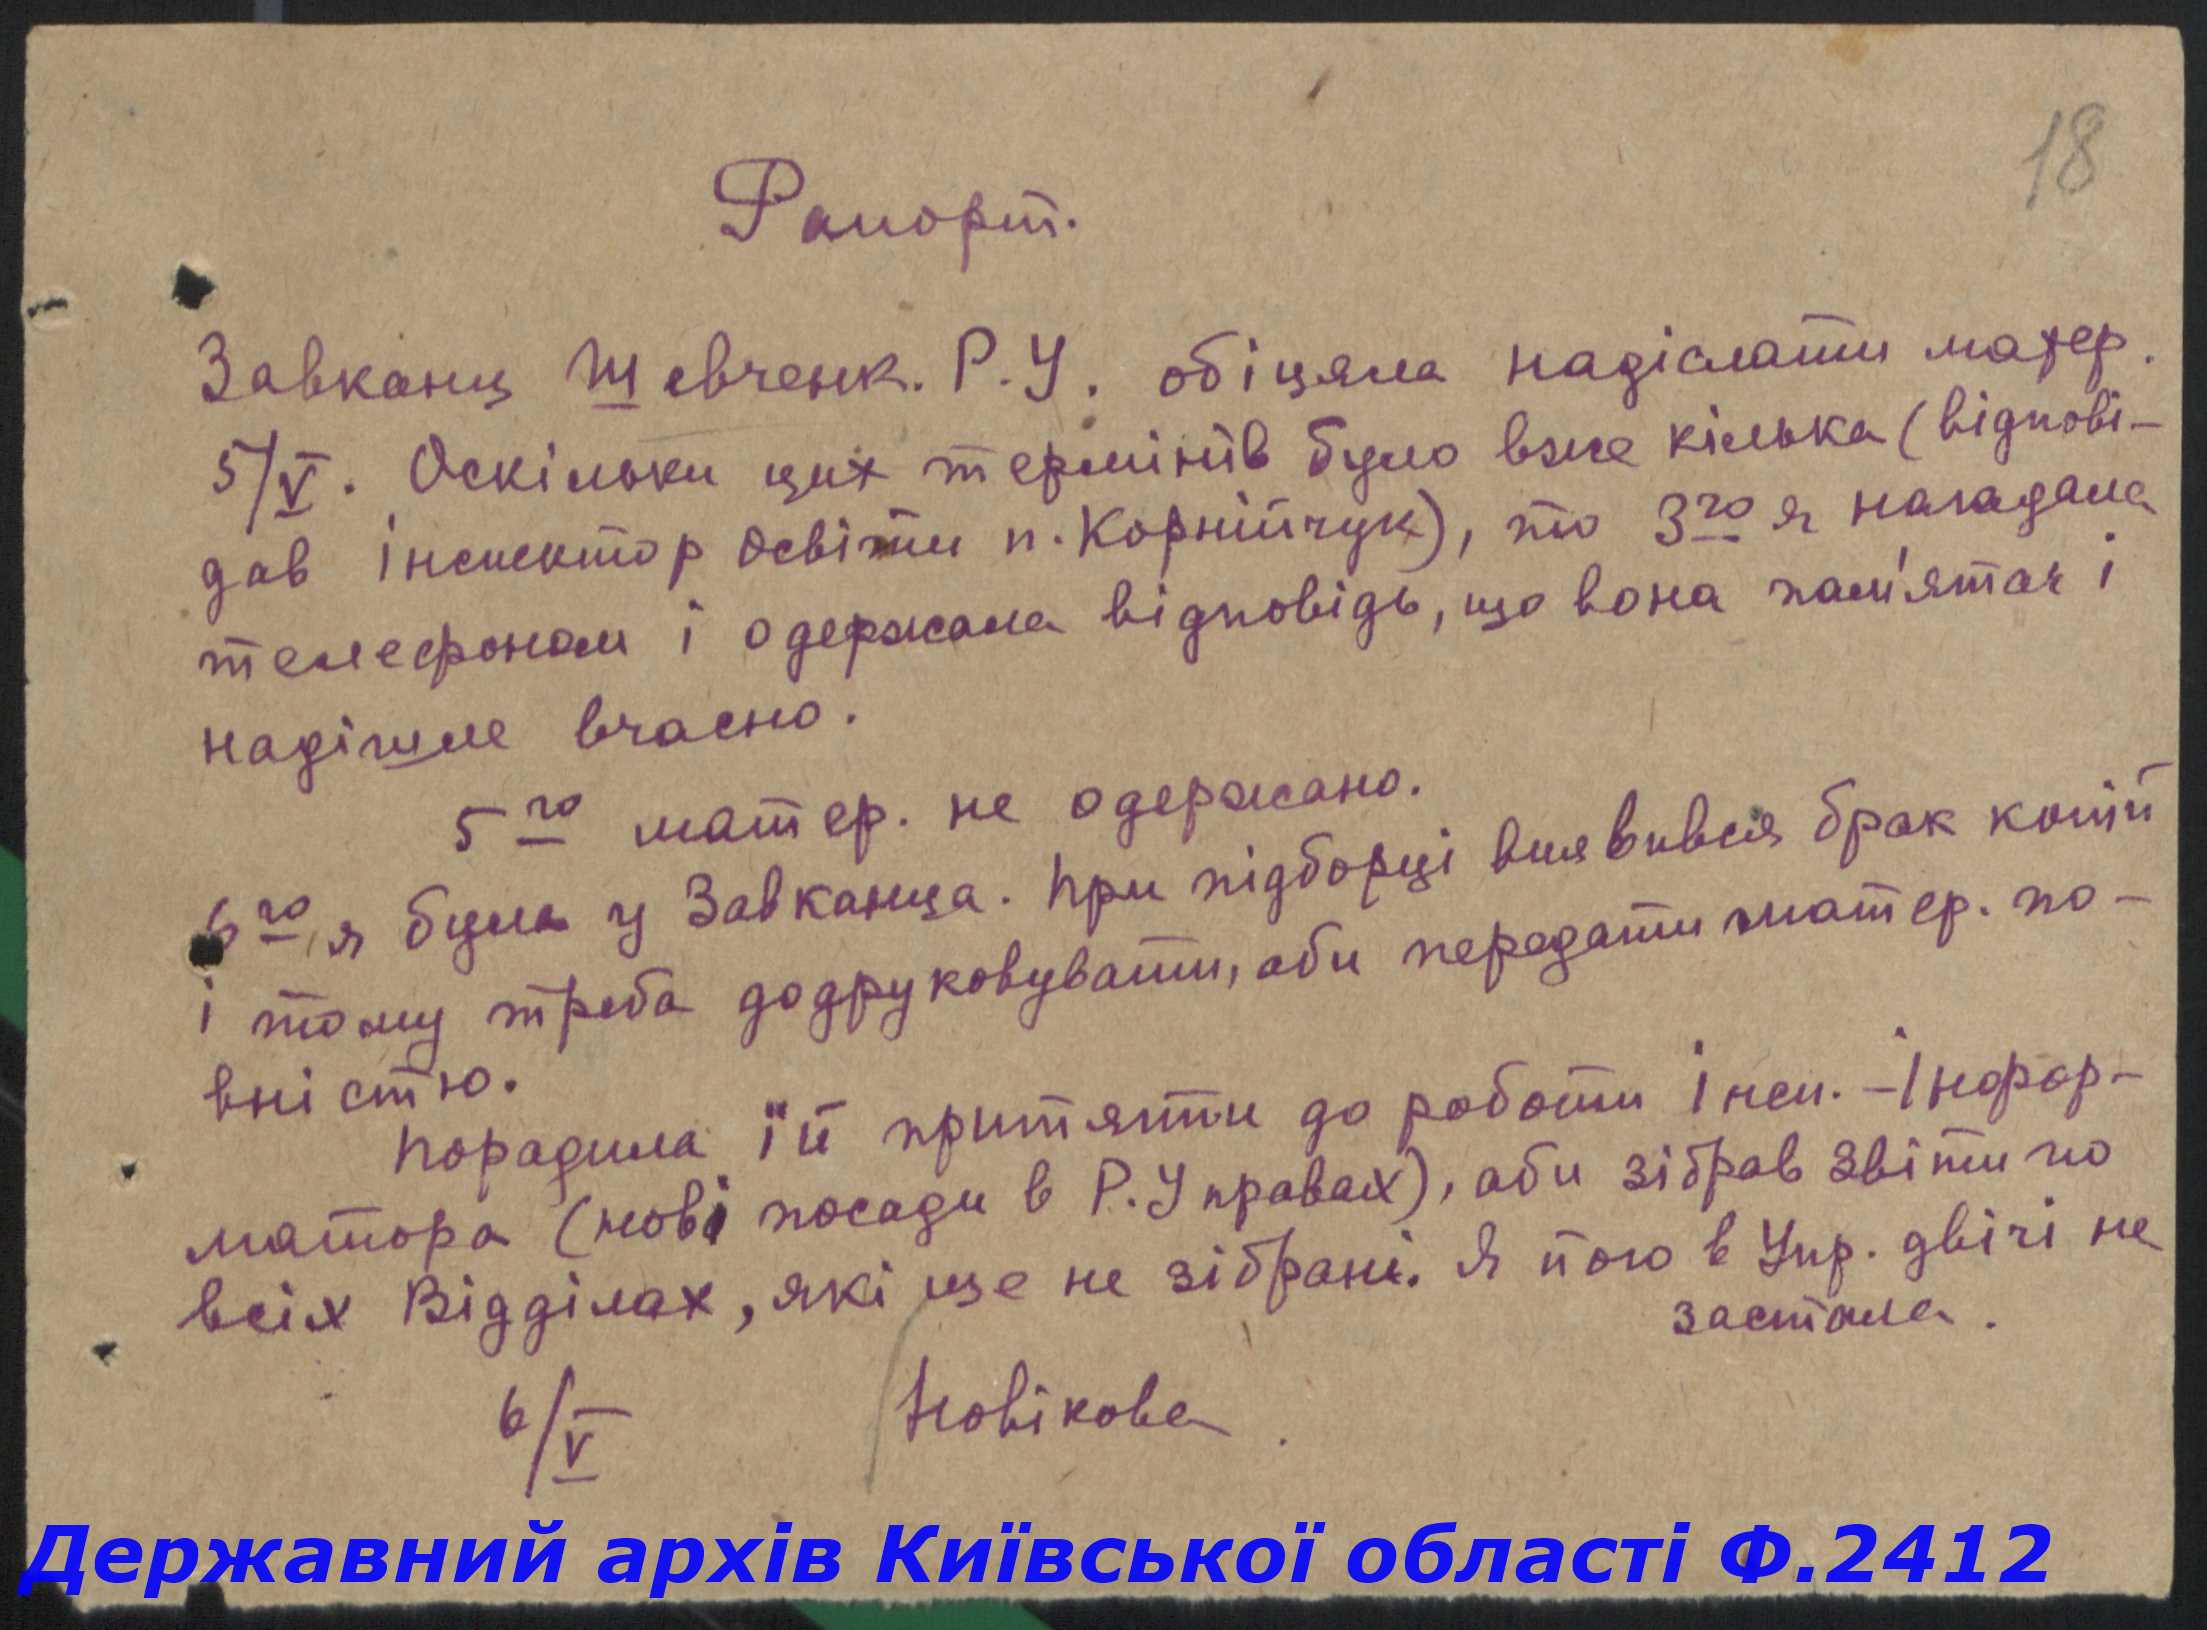 18
Рапорт.
Завканц Шевченк. Р.У. обіцяла надіслати матер.
5/V. Оскільки цих термінів було вже кілька (відпові-
дав інспектор Освіти п. Корнійчук), то 3го я нагадала
телефоном і одержала відповідь, що вона пам'ятає і
надішле вчасно.
5го матер. не одержано.
6го я була у Завканца. При підборці виявився брак копій
і тому треба додруковувати, аби передати матер. по-
вністю.
Порадила їй притягти до роботи Інсп. -Інфор-
матора (нові посади в Р.Управах), аби зібрав звіти по
всіх Відділах, які ще не зібрані. Я його в Упр. двічі не
застала.
6/V Новікова
Державний архів Київської області Ф.2412